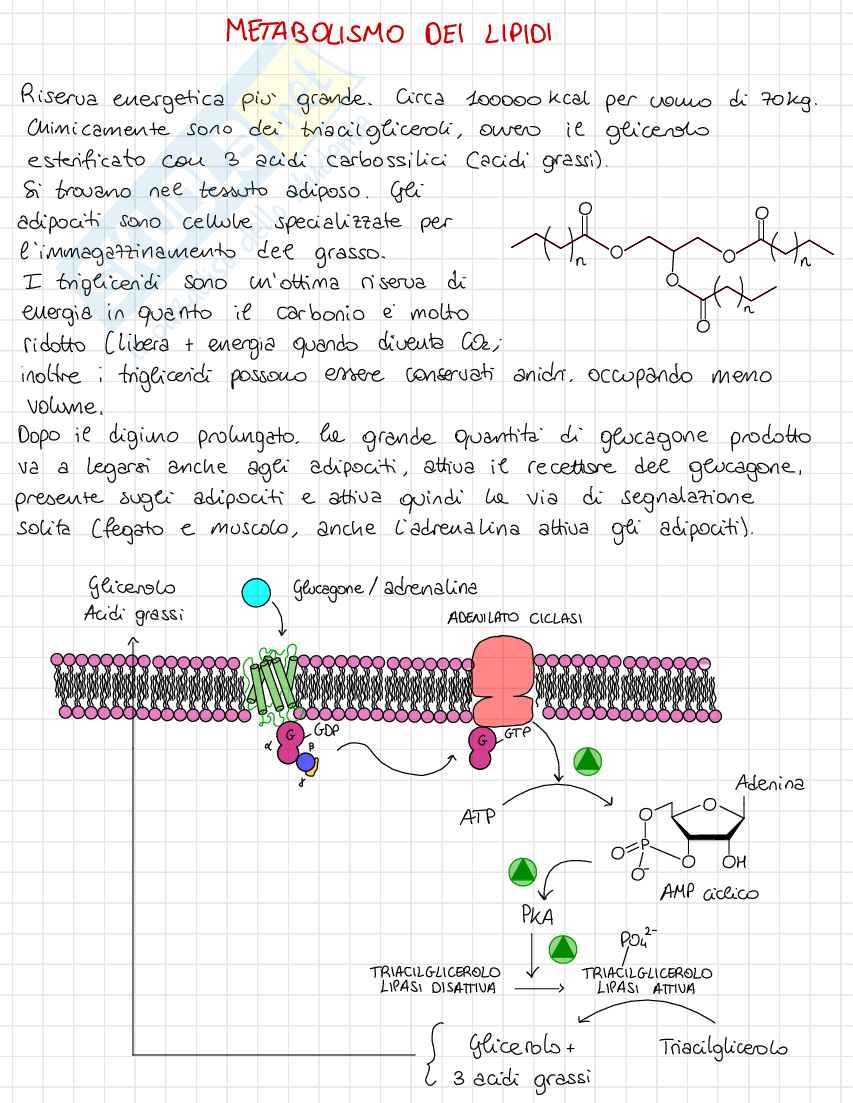 METABOLISMO DEI LIPIDI
Riserva energetica più grande. Circa 100000 kcal per uomo di 70kg.
Chimicamente sono dei triacilgliceroli, ovvero il glicerolo
esterificato con 3 acidi carbossilici (acidi grassi).
Si trovano nel tessuto adiposo. Gli
adipociti sono cellule specializzate per
l'immagazzinamento del grasso.
I trigliceridi sono un'ottima riserva di
energia in quanto il carbonio è molto
ridotto (libera + energia quando diventa CO2;
inoltre i trigliceridi possono essere conservati anidri, occupando meno
volume.
Dopo il digiuno prolungato, la grande quantità di glucagone prodotto
va a legarsi anche agli adipociti, attiva il recettore del glucagone,
presente sugli adipociti e attiva quindi la via di segnalazione
solita (fegato e muscolo, anche l'adrenalina attiva gli adipociti).
O
O
n
O
O
n
O
n
O
Glicerolo
Acidi grassi
Glucagone / adrenalina
ADENILATO CICLASI
G
GDP
α
β
γ
G
GTP
ATP
Adenina
O
O
O
P
O
O-
OH
AMP ciclico
PKA
PO4 2-
TRIACILGLICEROLO
LIPASI DISATTIVA
TRIACILGLICEROLO
LIPASI ATTIVA
Glicerolo +
3 acidi grassi
Triacilglicerolo